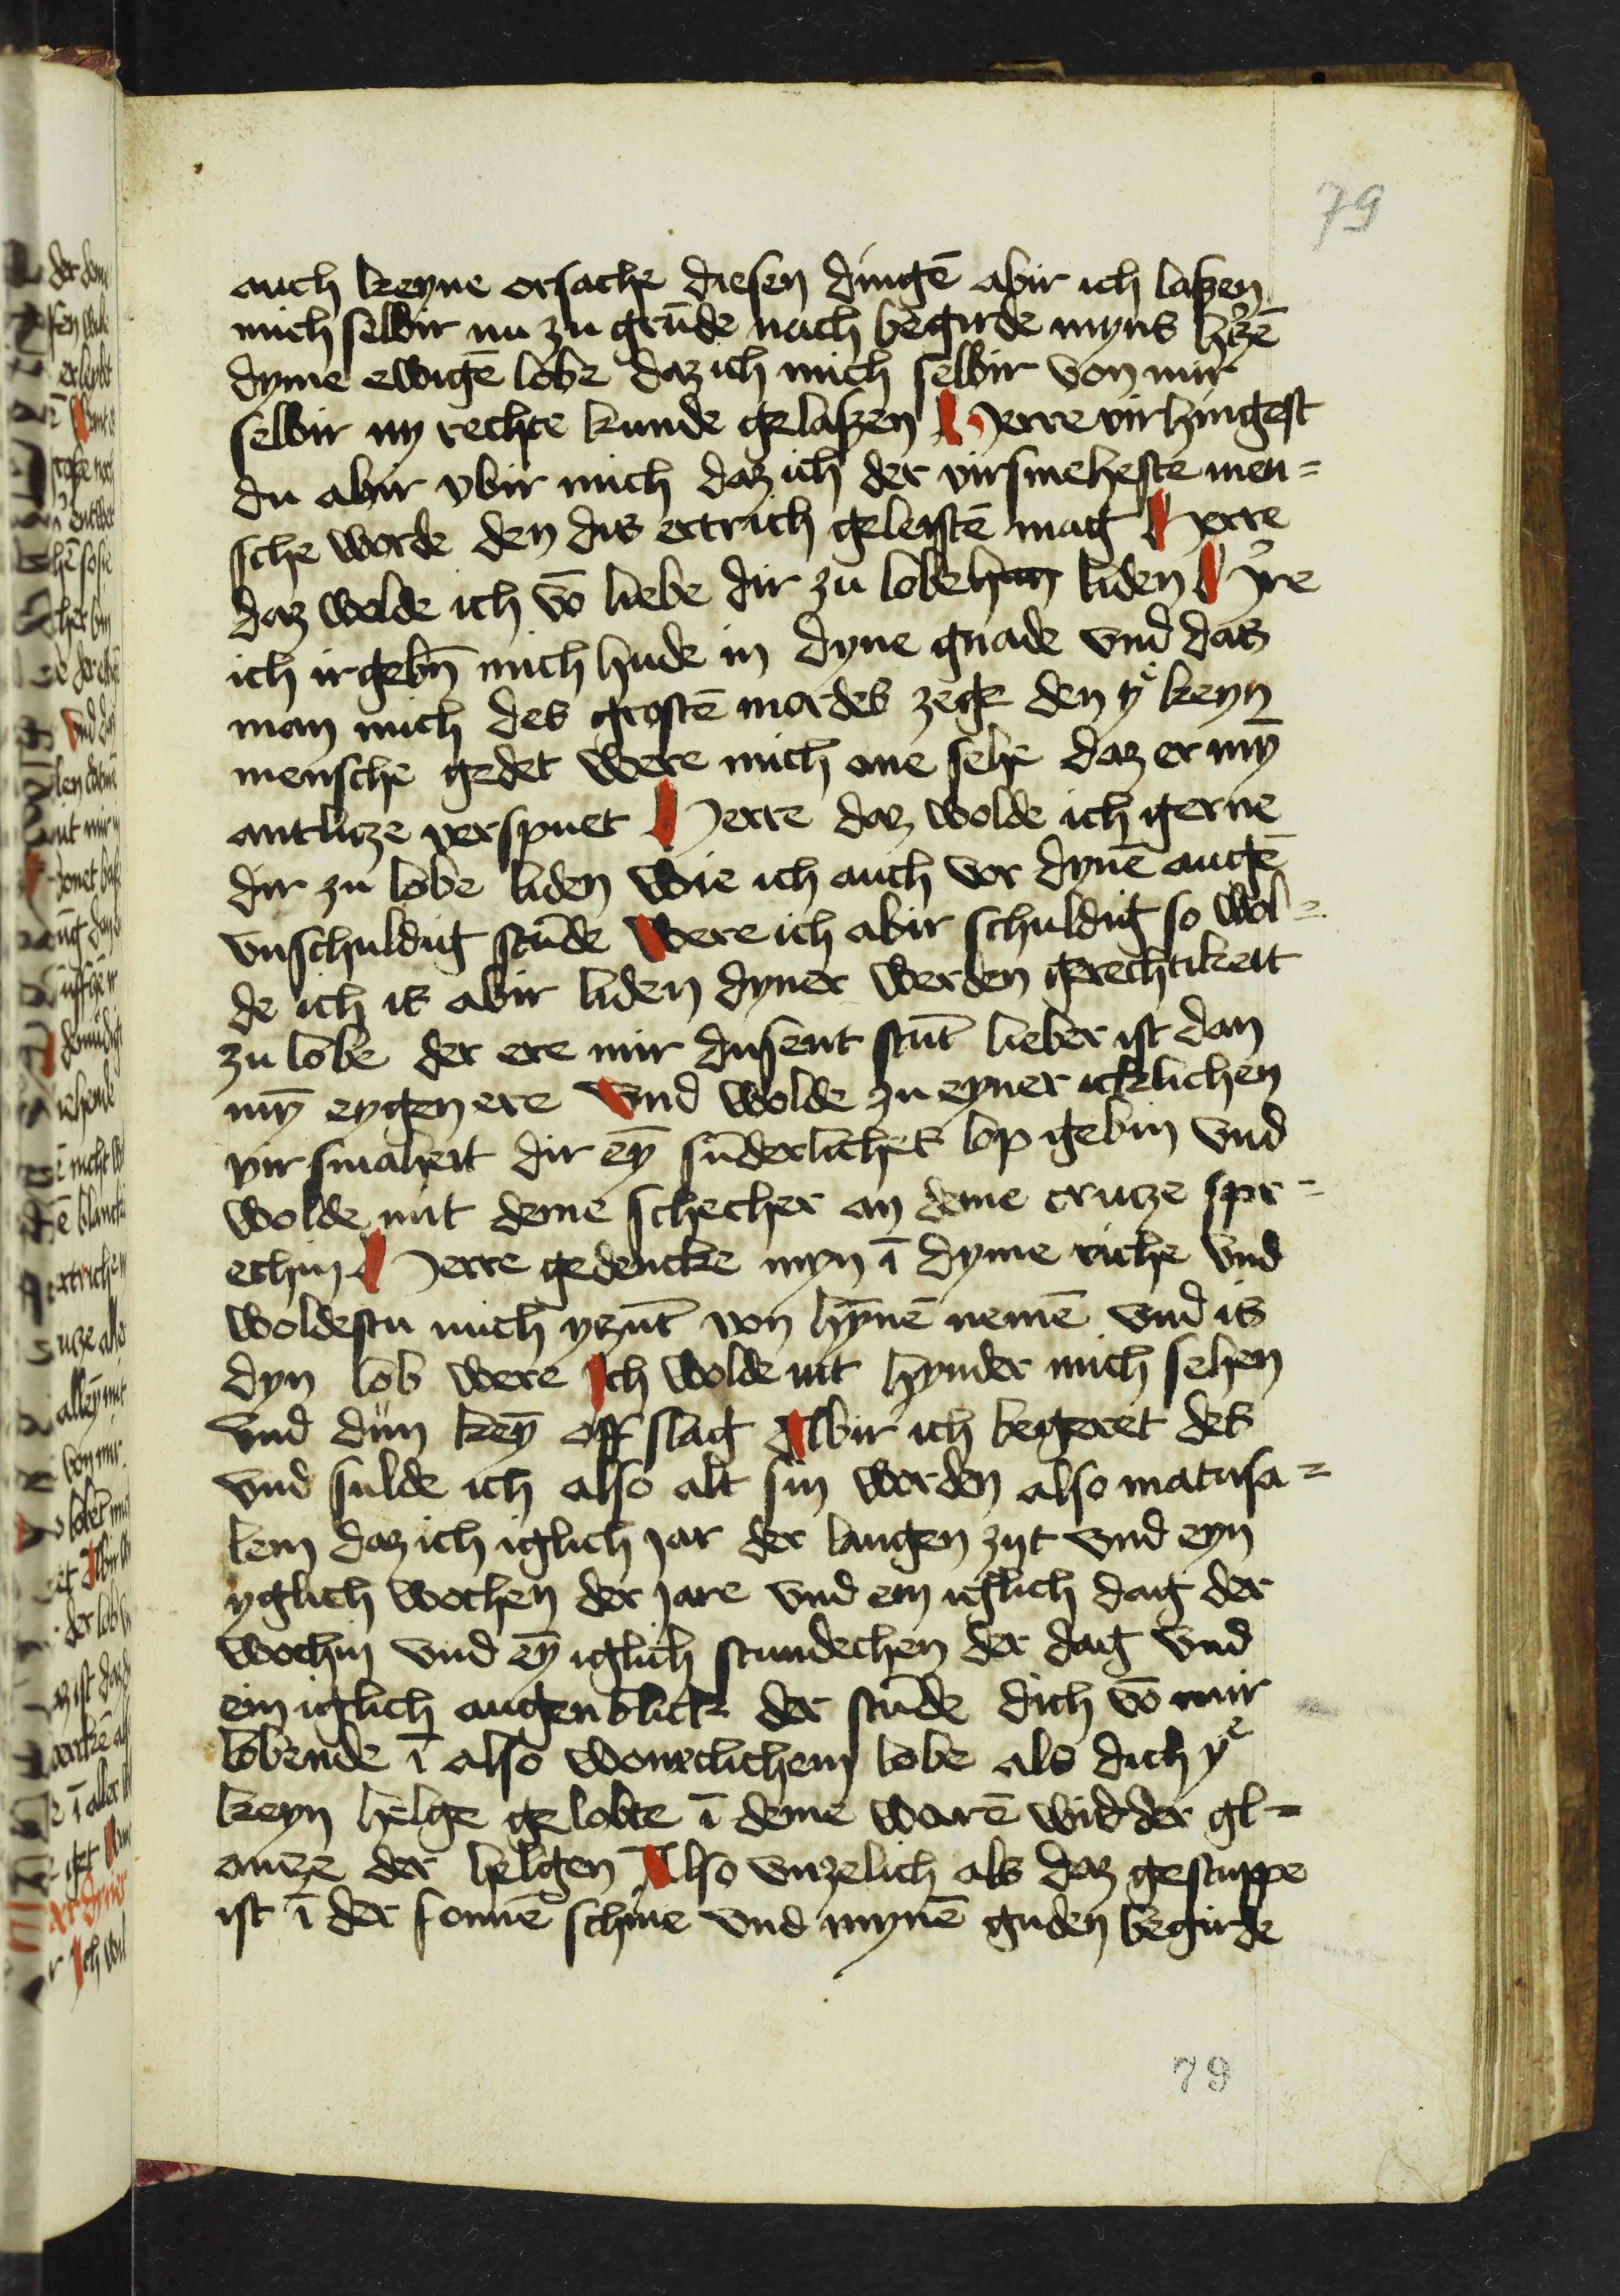 79
auch keyne orsache diesen dingē abir ich laßen
mich selbir nu zu grūde nach begirde myns hʼczē
dyme ewigē lobe daz ich mich selbir von mir
selbir ny rechte kunde gelaßen Herre virhingest
du abir vbir mich daz ich der virsmeheste men=
sche worde den dis ertrich geleistē mag Herre
daz wolde ich vō liebe dir zu lobe han liden Hʼre
ich irgebn̄ mich hude in dyne gnade vnd das
man mich des grostē mordes zege den yͤ keyn
mensche gedet were mich ane sehe daz er mȳ
antlicze verspuet Herre daz wolde ich gerne
dir zu lobe liden wie ich auch vor dynē augē
vnschuldig stūde Were ich abir schuldig so wol=
de ich is abir liden dyner werden gerechtikeit
zu lobe der ere mir dusent stūt lieber ist dan
mȳ eygen ere Vnd wolde zu eyner icklichen
virsmaheit dir eȳ sūderliches lop gebin vnd
wolde mit deme schecher an deme crucze spr=
echin Herre gedencke myn ī dyme riche vnd
woldestu mich yczūt von hȳnē nemē vnd is
dyn lob were Ich wolde nit hynder mich sehen
vnd dün keȳ off slag Abir ich begeret des
vnd sulde ich also alt sin worden also matusa=
lem daz ich iglich jar der langen zijt vnd eyn
yglich wochen der jare vnd ein iglich dag der
wochin vnd eȳ iglich stundechen der dag vnd
ein iglich augenblick der stūde dich vō mir
lobende ī also wonreclichem lobe als dich yͤ
keyn helge gelobte ī deme warē widder gl=
ancze der helgen Also vnzelich als daz gestuppe
ist ī der sonnē schine vnd mynē guden begirde
79